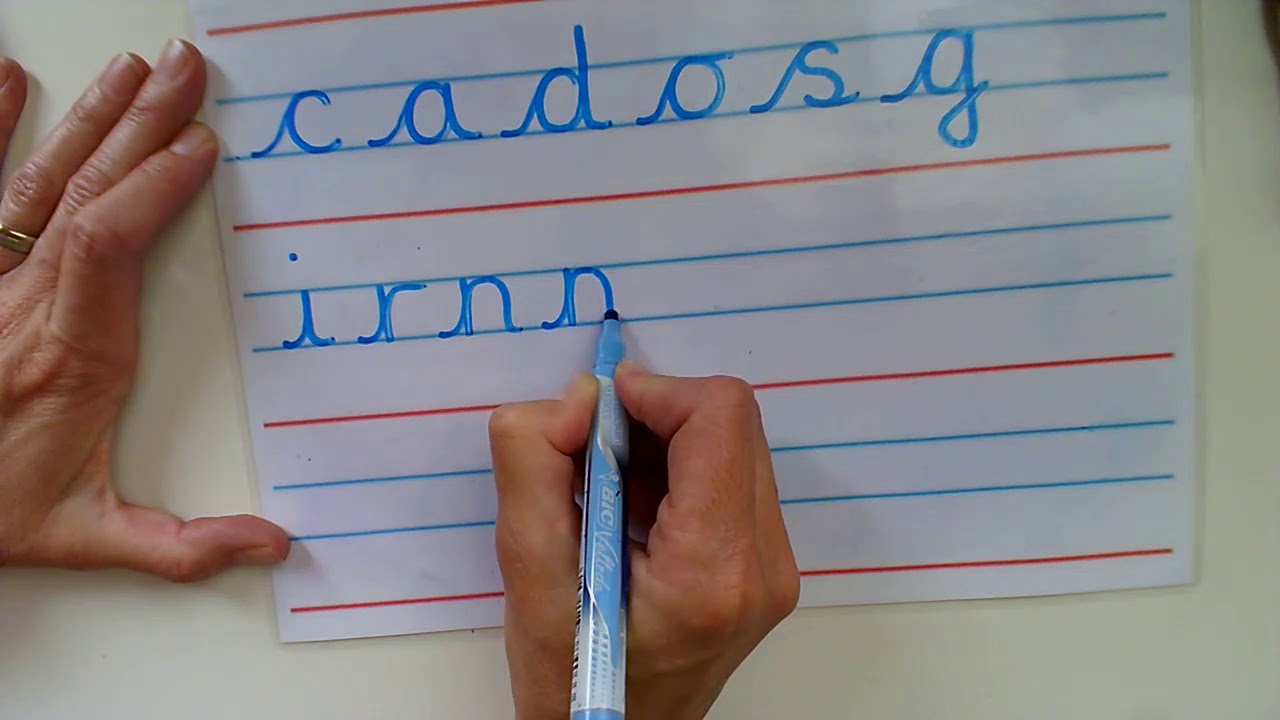 c a d o s g
i r n n
BIC Velleda